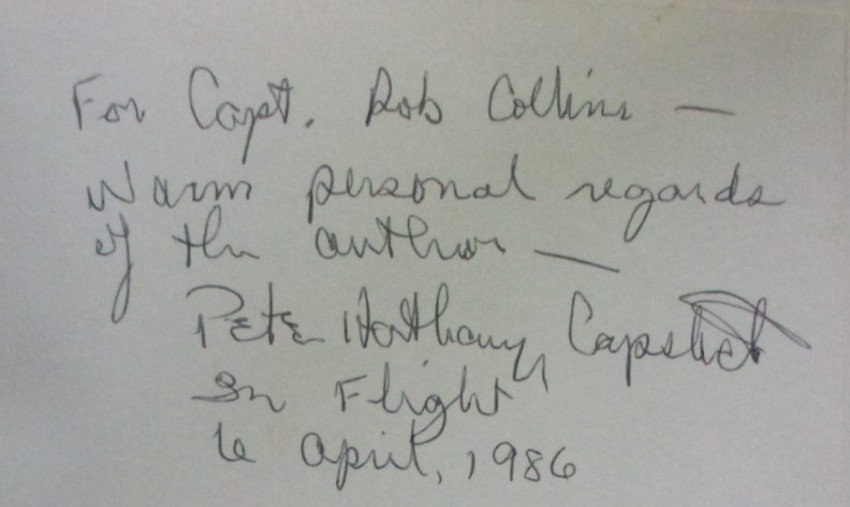 For Capt. Rob Collins —
Warm personal regards
of the author —
Pete Hathaway Capstick
In Flight
6 April, 1986